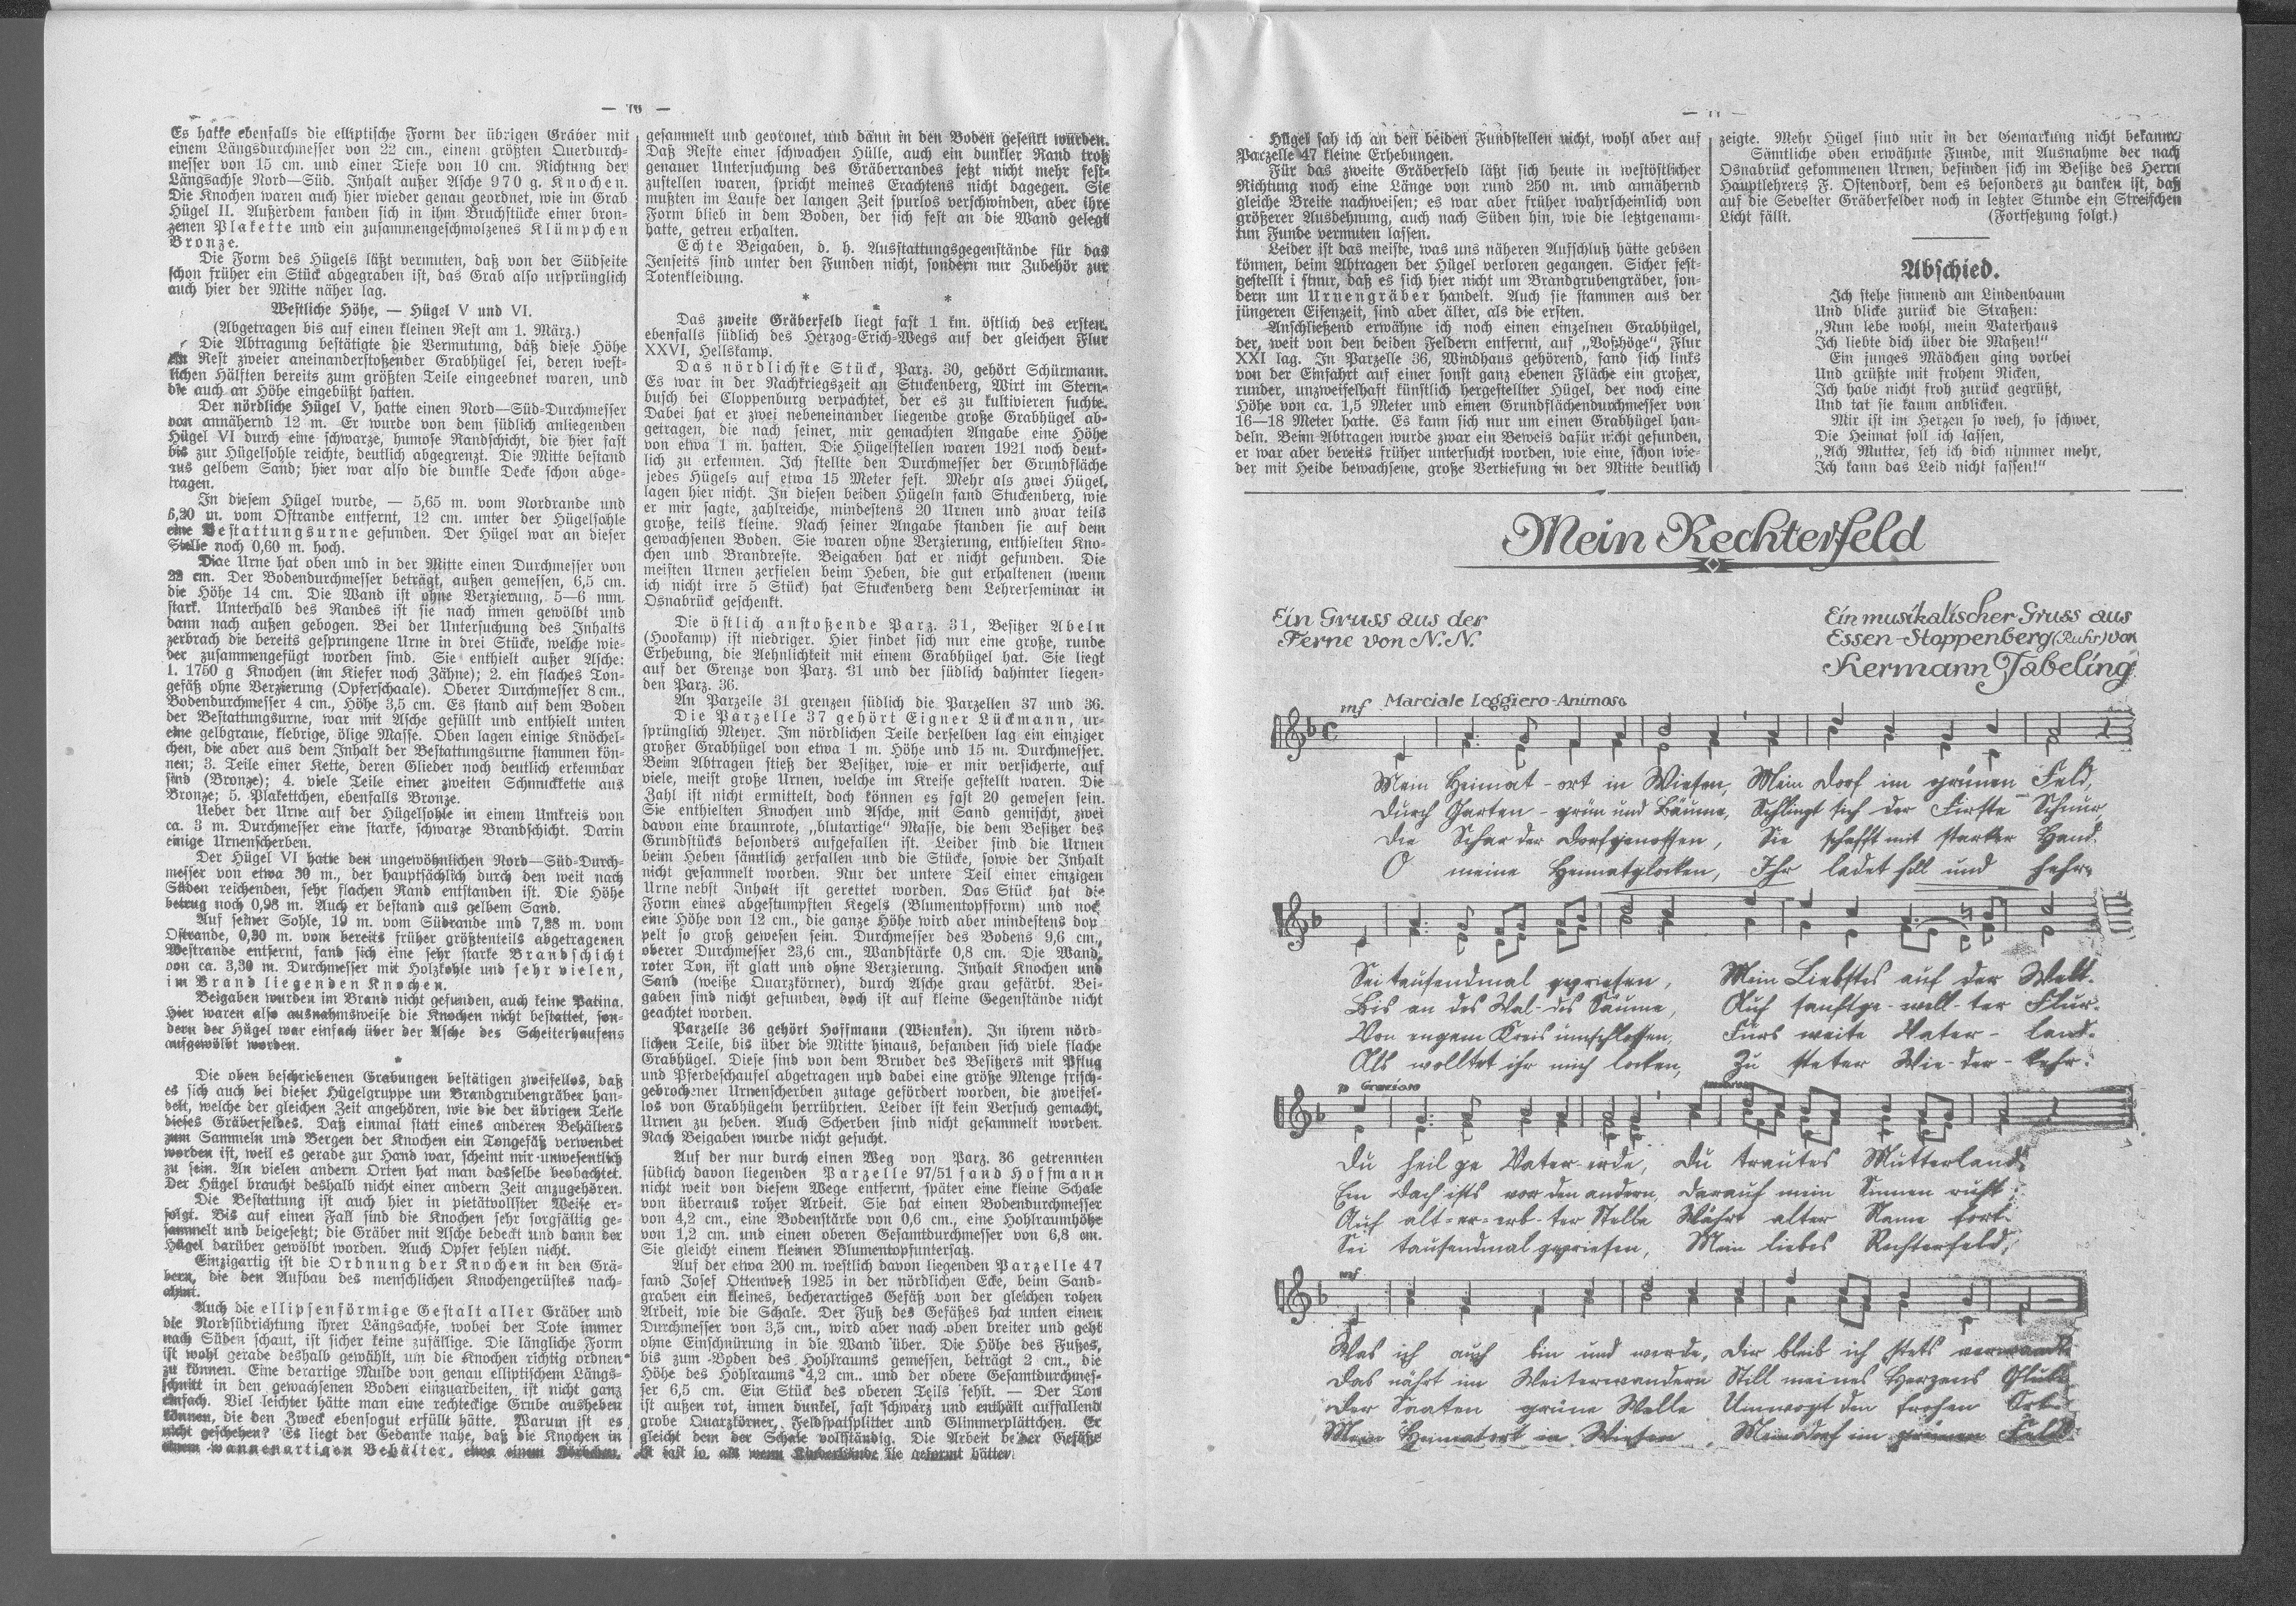 — 76 —
Es hatte ebenfalls die elliptische Form der übrigen Gräber mit
einem Längsdurchmesser von 22 cm., einem größten Querdurch-
messer von 15 cm. und einer Tiefe von 10 cm. Richtung der
Längsachse Nord—Süd. Inhalt außer Asche 970 g. Knochen.
Die Knochen waren auch hier wieder genau geordnet, wie im Grab
Hügel II. Außerdem fanden sich in ihm Bruchstücke einer bron-
zenen Plakette und ein zusammengeschmolzenes Klümpchen
Bronze.
Die Form des Hügels läßt vermuten, daß von der Südseite
schon früher ein Stück abgegraben ist, das Grab also ursprünglich
auch hier der Mitte näher lag.
Westliche Höhe, — Hügel V und VI.
(Abgetragen bis auf einen kleinen Rest am 1. März.)
Die Abtragung bestätigte die Vermutung, daß diese Höhe
ein Rest zweier aneinanderstoßender Grabhügel sei, deren west-
lichen Hälften bereits zum größten Teile eingeebnet waren, und
die auch an Höhe eingebüßt hatten.
Der nördliche Hügel V, hatte einen Nord—Süd-Durchmesser
von annähernd 12 m. Er wurde von dem südlich anliegenden
Hügel VI durch eine schwarze, humose Randschicht, die hier fast
bis zur Hügelsohle reichte, deutlich abgegrenzt. Die Mitte bestand
aus gelbem Sand; hier war also die dunkle Decke schon abge-
tragen.
In diesem Hügel wurde, — 5,65 m. vom Nordrande und
6,20 m. vom Ostrande entfernt, 12 cm. unter der Hügelsohle
eine Bestattungsurne gefunden. Der Hügel war an dieser
Stelle noch 0,60 m. hoch.
Diae Urne hat oben und in der Mitte einen Durchmesser von
22 cm. Der Bodendurchmesser beträgt, außen gemessen, 6,5 cm.
die Höhe 14 cm. Die Wand ist ohne Verzierung, 5—6 mm.
stark. Unterhalb des Randes ist sie nach innen gewölbt und
dann nach außen gebogen. Bei der Untersuchung des Inhalts
zerbrach die bereits gesprungene Urne in drei Stücke, welche wie-
der zusammengefügt worden sind. Sie enthielt außer Asche:
1. 1750 g Knochen (im Kiefer noch Zähne); 2. ein flaches Ton-
gefäß ohne Verzierung (Opferschaale). Oberer Durchmesser 8 cm.,
Bodendurchmesser 4 cm., Höhe 3,5 cm. Es stand auf dem Boden
der Bestattungsurne, war mit Asche gefüllt und enthielt unten
eine gelbgraue, klebrige, ölige Masse. Oben lagen einige Knöchel-
chen, die aber aus dem Inhalt der Bestattungsurne stammen kön-
nen; 3. Teile einer Kette, deren Glieder noch deutlich erkennbar
sind (Bronze); 4. viele Teile einer zweiten Schmuckkette aus
Bronze; 5. Plakettchen, ebenfalls Bronze.
Ueber der Urne auf der Hügelsohle in einem Umkreis von
ca. 3 m. Durchmesser eine starke, schwarze Brandschicht. Darin
einige Urnenscherben.
Der Hügel VI hatte den ungewöhnlichen Nord—Süd-Durch-
messer von etwa 30 m., der hauptsächlich durch den weit nach
Süden reichenden, sehr flachen Rand entstanden ist. Die Höhe
betrug noch 0,98 m. Auch er bestand aus gelbem Sand.
Auf seiner Sohle, 19 m. vom Südrande und 7,28 m. vom
Ostrande, 0,30 m. vom bereits früher größtenteils abgetragenen
Westrande entfernt, fand sich eine sehr starke Brandschicht
von ca. 3,30 m. Durchmesser mit Holzkohle und sehr vielen,
im Brand liegenden Knochen.
Beigaben wurden im Brand nicht gefunden, auch keine Patina.
Hier waren also ausnahmsweise die Knochen nicht bestattet, son-
dern der Hügel war einfach über der Asche des Scheiterhaufens
aufgewölbt worden.
*
Die oben beschriebenen Grabungen bestätigen zweifellos, daß
es sich auch bei dieser Hügelgruppe um Brandgrubengräber han-
delt, welche der gleichen Zeit angehören, wie die der übrigen Teile
dieses Gräberfeldes. Daß einmal statt eines anderen Behälters
zum Sammeln und Bergen der Knochen ein Tongefäß verwendet
worden ist, weil es gerade zur Hand war, scheint mir unwesentlich
zu sein. An vielen andern Orten hat man dasselbe beobachtet.
Der Hügel braucht deshalb nicht einer andern Zeit anzugehören.
Die Bestattung ist auch hier in pietätvollster Weise er-
folgt. Bis auf einen Fall sind die Knochen sehr sorgfältig ge-
sammelt und beigesetzt; die Gräber mit Asche bedeckt und dann der
Hügel darüber gewölbt worden. Auch Opfer fehlen nicht.
Einzigartig ist die Ordnung der Knochen in den Grä-
bern, die den Aufbau des menschlichen Knochengerüstes nach-
ahmt.
Auch die ellipsenförmige Gestalt aller Gräber und
die Nordsüdrichtung ihrer Längsachse, wobei der Tote immer
nach Süden schaut, ist sicher keine zufällige. Die längliche Form
ist wohl gerade deshalb gewählt, um die Knochen richtig ordnen
zu können. Eine derartige Mulde von genau elliptischem Längs-
schnitt in den gewachsenen Boden einzuarbeiten, ist nicht ganz
einfach. Viel leichter hätte man eine rechteckige Grube ausheben
können, die den Zweck ebensogut erfüllt hätte. Warum ist es
nicht geschehen? Es liegt der Gedanke nahe, daß die Knochen in
einem wannenartigen Behälter, etwa einem Körbchen,
gesammelt und geordnet, und dann in den Boden gesenkt wurden.
Daß Reste einer schwachen Hülle, auch ein dunkler Rand trotz
genauer Untersuchung des Gräberrandes jetzt nicht mehr fest-
zustellen waren, spricht meines Erachtens nicht dagegen. Sie
mußten im Laufe der langen Zeit spurlos verschwinden, aber ihre
Form blieb in dem Boden, der sich fest an die Wand gelegt
hatte, getreu erhalten.
Echte Beigaben, d. h. Ausstattungsgegenstände für das
Jenseits sind unter den Funden nicht, sondern nur Zubehör zur
Totenkleidung.
* * *
Das zweite Gräberfeld liegt fast 1 km. östlich des ersten,
ebenfalls südlich des Herzog-Erich-Wegs auf der gleichen Flur
XXVI, Hellskamp.
Das nördlichste Stück, Parz. 30, gehört Schürmann.
Es war in der Nachkriegszeit an Stuckenberg, Wirt im Stern-
busch bei Cloppenburg verpachtet, der es zu kultivieren suchte.
Dabei hat er zwei nebeneinander liegende große Grabhügel ab-
getragen, die nach seiner, mir gemachten Angabe eine Höhe
von etwa 1 m. hatten. Die Hügelstellen waren 1921 noch deut-
lich zu erkennen. Ich stellte den Durchmesser der Grundfläche
jedes Hügels auf etwa 15 Meter fest. Mehr als zwei Hügel,
lagen hier nicht. In diesen beiden Hügeln fand Stuckenberg, wie
er mir sagte, zahlreiche, mindestens 20 Urnen und zwar teils
große, teils kleine. Nach seiner Angabe standen sie auf dem
gewachsenen Boden. Sie waren ohne Verzierung, enthielten Kno-
chen und Brandreste. Beigaben hat er nicht gefunden. Die
meisten Urnen zerfielen beim Heben, die gut erhaltenen (wenn
ich nicht irre 5 Stück) hat Stuckenberg dem Lehrerseminar in
Osnabrück geschenkt.
Die östlich anstoßende Parz. 31, Besitzer Abeln
(Hookamp) ist niedriger. Hier findet sich nur eine große, runde
Erhebung, die Aehnlichkeit mit einem Grabhügel hat. Sie liegt
auf der Grenze von Parz. 31 und der südlich dahinter liegen-
den Parz. 36.
An Parzelle 31 grenzen südlich die Parzellen 37 und 36.
Die Parzelle 37 gehört Eigner Lückmann, ur-
sprünglich Meyer. Im nördlichen Teile derselben lag ein einziger
großer Grabhügel von etwa 1 m. Höhe und 15 m. Durchmesser.
Beim Abtragen stieß der Besitzer, wie er mir versicherte, auf
viele, meist große Urnen, welche im Kreise gestellt waren. Die
Zahl ist nicht ermittelt, doch können es fast 20 gewesen sein.
Sie enthielten Knochen und Asche, mit Sand gemischt, zwei
davon eine braunrote, „blutartige“ Masse, die dem Besitzer des
Grundstücks besonders aufgefallen ist. Leider sind die Urnen
beim Heben sämtlich zerfallen und die Stücke, sowie der Inhalt
nicht gesammelt worden. Nur der untere Teil einer einzigen
Urne nebst Inhalt ist gerettet worden. Das Stück hat die
Form eines abgestumpften Kegels (Blumentopfform) und noch
eine Höhe von 12 cm., die ganze Höhe wird aber mindestens dop
pelt so groß gewesen sein. Durchmesser des Bodens 9,6 cm.,
oberer Durchmesser 23,6 cm., Wandstärke 0,8 cm. Die Wand,
roter Ton, ist glatt und ohne Verzierung. Inhalt Knochen und
Sand (weiße Quarzkörner), durch Asche grau gefärbt. Bei-
gaben sind nicht gefunden, doch ist auf kleine Gegenstände nicht
geachtet worden.
Parzelle 36 gehört Hoffmann (Wienken). In ihrem nörd-
lichen Teile, bis über die Mitte hinaus, befanden sich viele flache
Grabhügel. Diese sind von dem Bruder des Besitzers mit Pflug
und Pferdeschaufel abgetragen und dabei eine größe Menge frisch-
gebrochener Urnenscherben zutage gefördert worden, die zweifel-
los von Grabhügeln herrührten. Leider ist kein Versuch gemacht,
Urnen zu heben. Auch Scherben sind nicht gesammelt worden.
Nach Beigaben wurde nicht gesucht.
Auf der nur durch einen Weg von Parz. 36 getrennten
südlich davon liegenden Parzelle 97/51 fand Hoffmann
nicht weit von diesem Wege entfernt, später eine kleine Schale
von überraus roher Arbeit. Sie hat einen Bodendurchmesser
von 4,2 cm., eine Bodenstärke von 0,6 cm., eine Hohlraumhöhe
von 1,2 cm. und einen oberen Gesamtdurchmesser von 6,8 cm.
Sie gleicht einem kleinen Blumentopfuntersatz.
Auf der etwa 200 m. westlich davon liegenden Parzelle 47
fand Josef Ottenweß 1925 in der nördlichen Ecke, beim Sand-
graben ein kleines, becherartiges Gefäß von der gleichen rohen
Arbeit, wie die Schale. Der Fuß des Gefäßes hat unten einen
Durchmesser von 3,5 cm., wird aber nach oben breiter und geht
ohne Einschnürung in die Wand über. Die Höhe des Fußes,
bis zum Boden des Hohlraums gemessen, beträgt 2 cm., die
Höhe des Hohlraums 4,2 cm.. und der obere Gesamtdurchmes-
ser 6,5 cm. Ein Stück des oberen Teils fehlt. — Der Ton
ist außen rot, innen dunkel, fast schwarz und enthält auffallend
grobe Quarzkörner, Feldspatsplitter und Glimmerplättchen. Er
gleicht dem der Schale vollständig. Die Arbeit beider Gefäße
ist fast so, als wenn Kinderhände sie geformt hätten.
Hügel sah ich an den beiden Fundstellen nicht, wohl aber auf
Parzelle 47 kleine Erhebungen.
Für das zweite Gräberfeld läßt sich heute in westöstlicher
Richtung noch eine Länge von rund 250 m. und annähernd
gleiche Breite nachweisen; es war aber früher wahrscheinlich von
größerer Ausdehnung, auch nach Süden hin, wie die letztgenann-
tun Funde vermuten lassen.
Leider ist das meiste, was uns näheren Aufschluß hätte gebsen
können, beim Abtragen der Hügel verloren gegangen. Sicher fest-
gestellt i stnur, daß es sich hier nicht um Brandgrubengräber, son-
dern um Urnengräber handelt. Auch sie stammen aus der
jüngeren Eisenzeit, sind aber älter, als die ersten.
Anschließend erwähne ich noch einen einzelnen Grabhügel,
der, weit von den beiden Feldern entfernt, auf „Voßhöge“, Flur
XXI lag. In Parzelle 36, Windhaus gehörend, fand sich links
von der Einfahrt auf einer sonst ganz ebenen Fläche ein großer,
runder, unzweifelhaft künstlich hergestellter Hügel, der noch eine
Höhe von ca. 1,5 Meter und einen Grundflächendurchmesser von
16—18 Meter hatte. Es kann sich nur um einen Grabhügel han-
deln. Beim Abtragen wurde zwar ein Beweis dafür nicht gefunden,
er war aber bereits früher untersucht worden, wie eine, schon wie-
der mit Heide bewachsene, große Vertiefung in der Mitte deutlich
zeigte. Mehr Hügel sind mir in der Gemarkung nicht bekannt.
Sämtliche oben erwähnte Funde, mit Ausnahme der nach
Osnabrück gekommenen Urnen, befinden sich im Besitze des Herrn
Hauptlehrers F. Ostendorf, dem es besonders zu danken ist, daß
auf die Sevelter Gräberfelder noch in letzter Stunde ein Streifchen
Licht fällt. (Fortsetzung folgt.)
Abschied.
Ich stehe sinnend am Lindenbaum
Und blicke zurück die Straßen:
„Nun lebe wohl, mein Vaterhaus
Ich liebte dich über die Maßen!“
Ein junges Mädchen ging vorbei
Und grüßte mit frohem Nicken,
Ich habe nicht froh zurück gegrüßt,
Und tat sie kaum anblicken.
Mir ist im Herzen so weh, so schwer,
Die Heimat soll ich lassen,
„Ach Mutter, seh ich dich nimmer mehr,
Ich kann das Leid nicht fassen!“
Mein Rechterfeld
Ein Gruss aus der
Ferne von N.N.
Ein musikalischer Gruss aus
Essen-Stoppenberg (Ruhr) von
Hermann Tabeling
mf Marciale Leggiero-Animoso
Mein Heimat-ort in Wiesen, Mein Dorf im grünen Feld,
Durch Garten-grün und Bäume, Schlingt sich der Firste Schnur,
Die Schar der Dorfgenossen, Sie schafft mit starker Hand.
O meine Heimatglocken, Ihr ladet still und hehr,
Sei tausendmal gepriesen, Mein Liebstes auf der Welt.
Bis an des Wal-des Säume, Auf sanftge-well-ter Flur.
Von engem Kreis umschlossen, Fürs weite Vater-land.
Als wolltet ihr mich locken, Zu steter Wie-der-kehr.
p Grazioso
Du heil ge Vater-erde, Du trautes Mutterland,
Ein Dach ists vor den andern, Darauf mein Sinnen ruht
Auf alt-er-erb-ter Stelle Währt alter Name fort.
Sei tausendmal gepriesen, Mein liebes Rechterfeld,
mf
Was ich auch bin und werde, Dir bleib ich stets verwandt
Das nährt im Weiterwandern Still meines Herzens Glut
Der Saaten grüne Welle Umwogt den frohen Ort
Mein Heimatort in Wiesen, Mein Dorf im grünen Feld